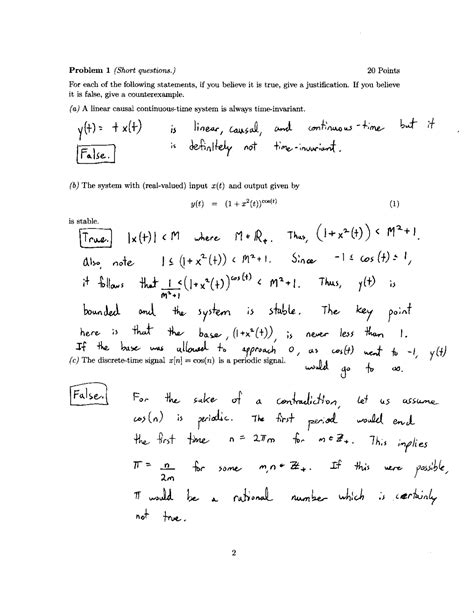 Problem 1 (Short questions.) 20 Points
For each of the following statements, if you believe it is true, give a justification. If you believe
it is false, give a counterexample.
(a) A linear causal continuous-time system is always time-invariant.
y(t) = t x(t) is linear, causal, and continuous-time but it
False. is definitely not time-invariant.
(b) The system with (real-valued) input x(t) and output given by
y(t) = (1 + x²(t))^cos(t) (1)
is stable.
True. |x(t)| < M where M ∈ ℝ₊. Thus, (1+x²(t)) < M²+1.
Also, note 1 ≤ (1+x²(t)) < M²+1. Since -1 ≤ cos(t) ≤ 1,
it follows that 1/(M²+1) < (1+x²(t))^cos(t) < M²+1. Thus, y(t) is
bounded and the system is stable. The key point
here is that the base, (1+x²(t)), is never less than 1.
If the base was allowed to approach 0, as cos(t) went to -1, y(t)
would go to ∞.
(c) The discrete-time signal x[n] = cos(n) is a periodic signal.
False. For the sake of a contradiction, let us assume
cos(n) is periodic. The first period would end
the first time n = 2πm for m ∈ ℤ₊. This implies
π = n/2m for some m,n ∈ ℤ₊. If this were possible,
π would be a rational number which is certainly
not true.
2